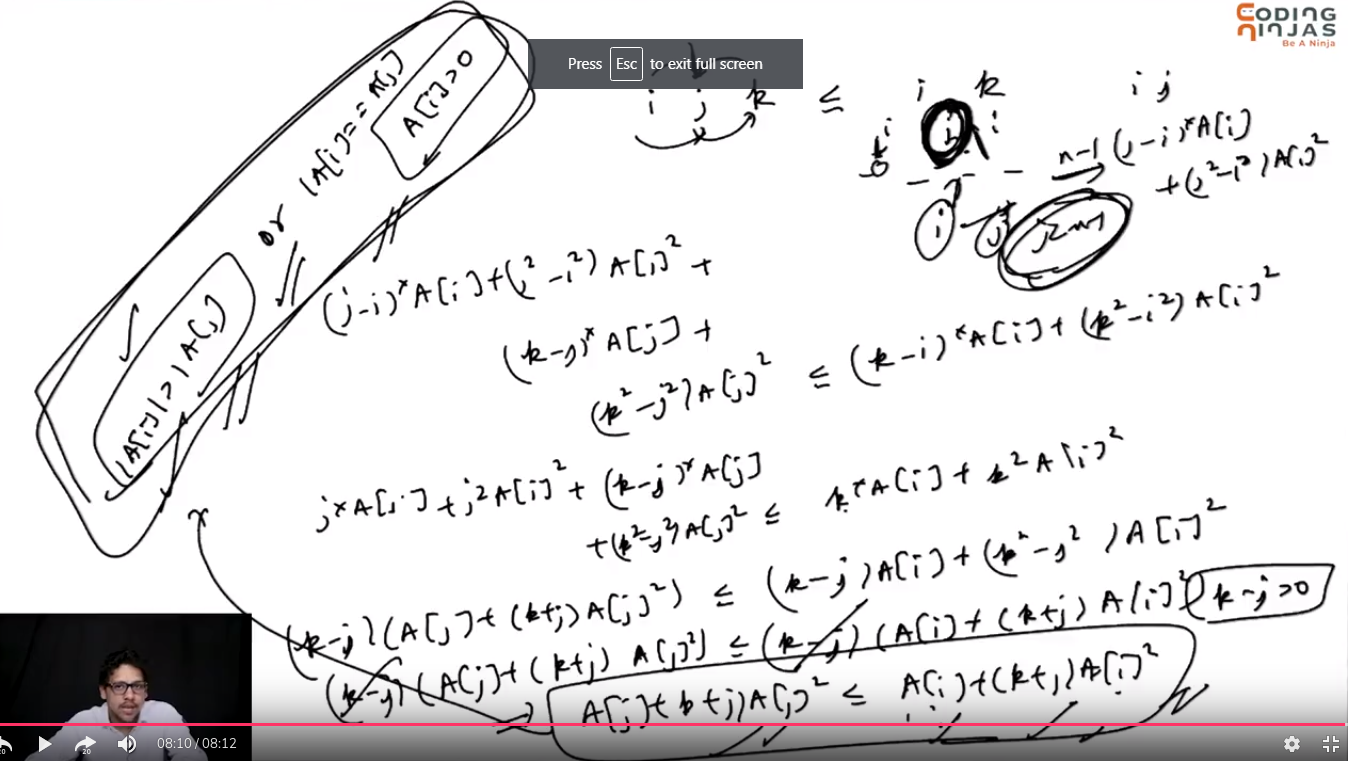 CODING
NINJAS
Be A Ninja
Press Esc to exit full screen
i j k ≤
i k
i j
n-1 (j-i)*A[i]
+(j²-i²)A[i]²
|A[i]|>|A[j]| or |A[i]==A[j]
A[i]>0
i j
(j-i)*A[i]+(j²-i²)A[i]²+
(k-j)*A[j]+
(k²-j²)A[j]² ≤ (k-i)*A[i]+(k²-i²)A[i]²
j*A[i]+j²A[i]²+(k-j)*A[j]
+(k²-j²)A[j]² ≤ k*A[i]+k²A[i]²
(k-j)(A[j]+(k+j)A[j]²) ≤ (k-j)A[i]+(k²-j²)A[i]²
(k-j)(A[j]+(k+j)A[j]²) ≤ (k-j)(A[i]+(k+j)A[i]²) k-j>0
A[j]+k+j)A[j]² ≤ A[i]+(k+j)A[i]²
20 20 08:10 / 08:12